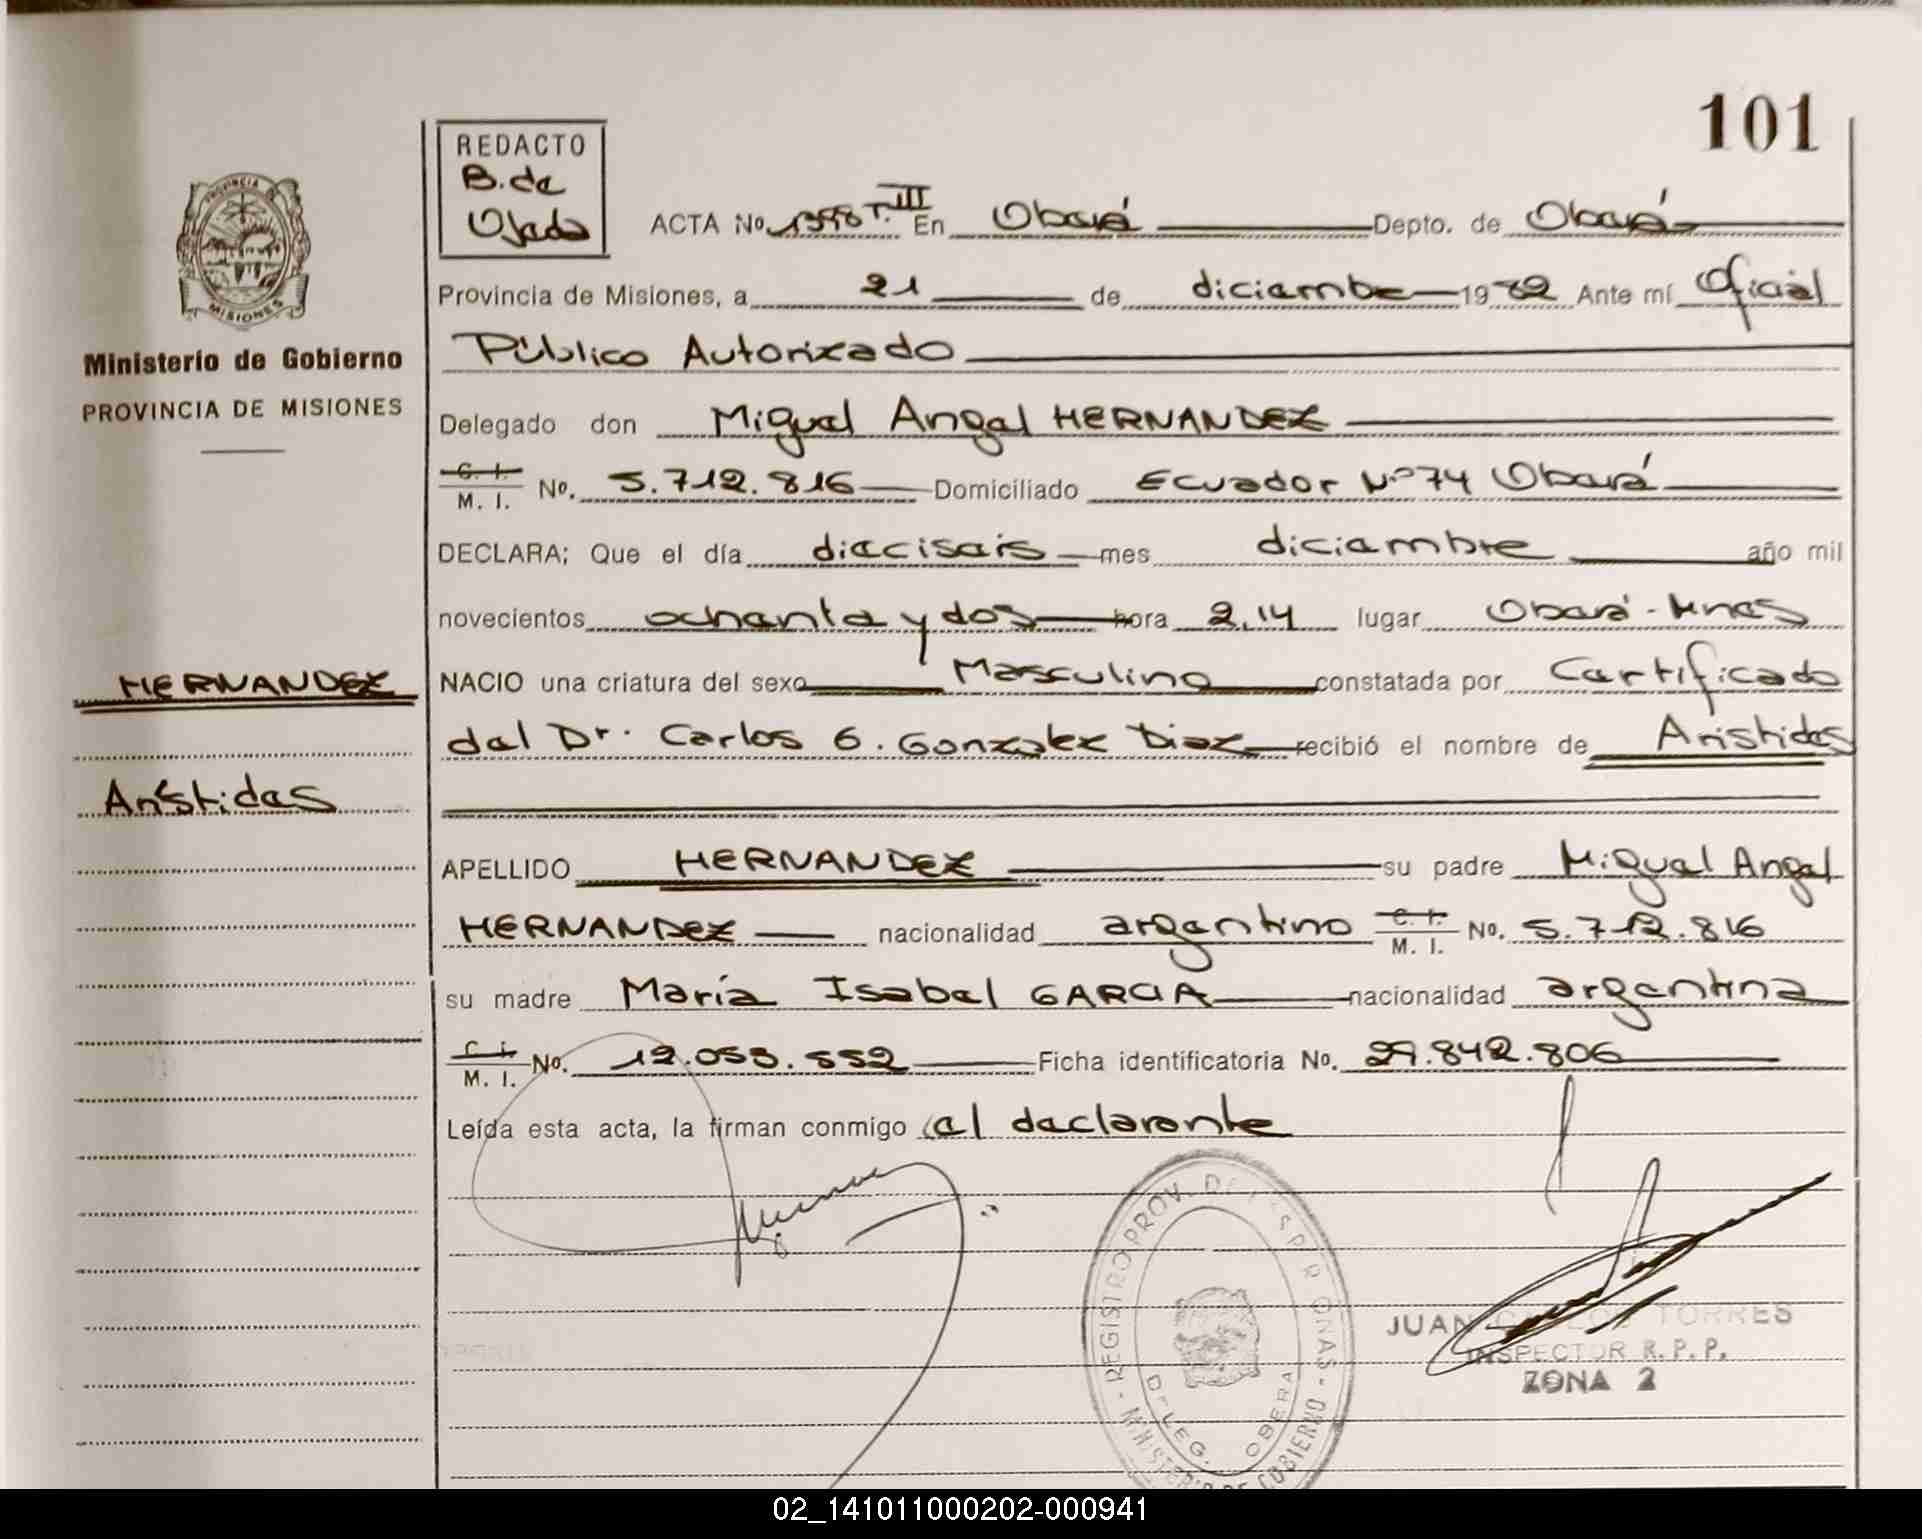 101
REDACTO
B. de
Ojeda
ACTA No. 1398 T. III En Oberá Depto. de Oberá
Provincia de Misiones, a 21 de diciembre 1982 Ante mí Oficial
Público Autorizado
PROVINCIA DE
MISIONES
Ministerio de Gobierno
PROVINCIA DE MISIONES
Delegado don Miguel Angel HERNANDEZ
C. I. M. I. No. 5.712.816 Domiciliado Ecuador Nº 74 Oberá
DECLARA; Que el día dieciseis mes diciembre año mil
novecientos ochenta y dos hora 2,14 lugar Oberá - Mnes
HERNANDEZ
NACIO una criatura del sexo Masculino constatada por Certificado
del Dr. Carlos G. Gonzalez Diaz recibió el nombre de Arístides
Arístides
APELLIDO HERNANDEZ su padre Miguel Angel
HERNANDEZ nacionalidad argentino C. I. M. I. No. 5.712.816
su madre María Isabel GARCIA nacionalidad argentina
C. I. M. I. No. 12.053.552 Ficha identificatoria No. 29.842.806
Leída esta acta, la firman conmigo el declarante
REGISTRO PROV. DE LAS PERSONAS - MINISTERIO DE GOBIERNO
DELEG. OBERA
JUAN CARLOS TORRES
INSPECTOR R. P. P.
ZONA 2
02_141011000202-000941